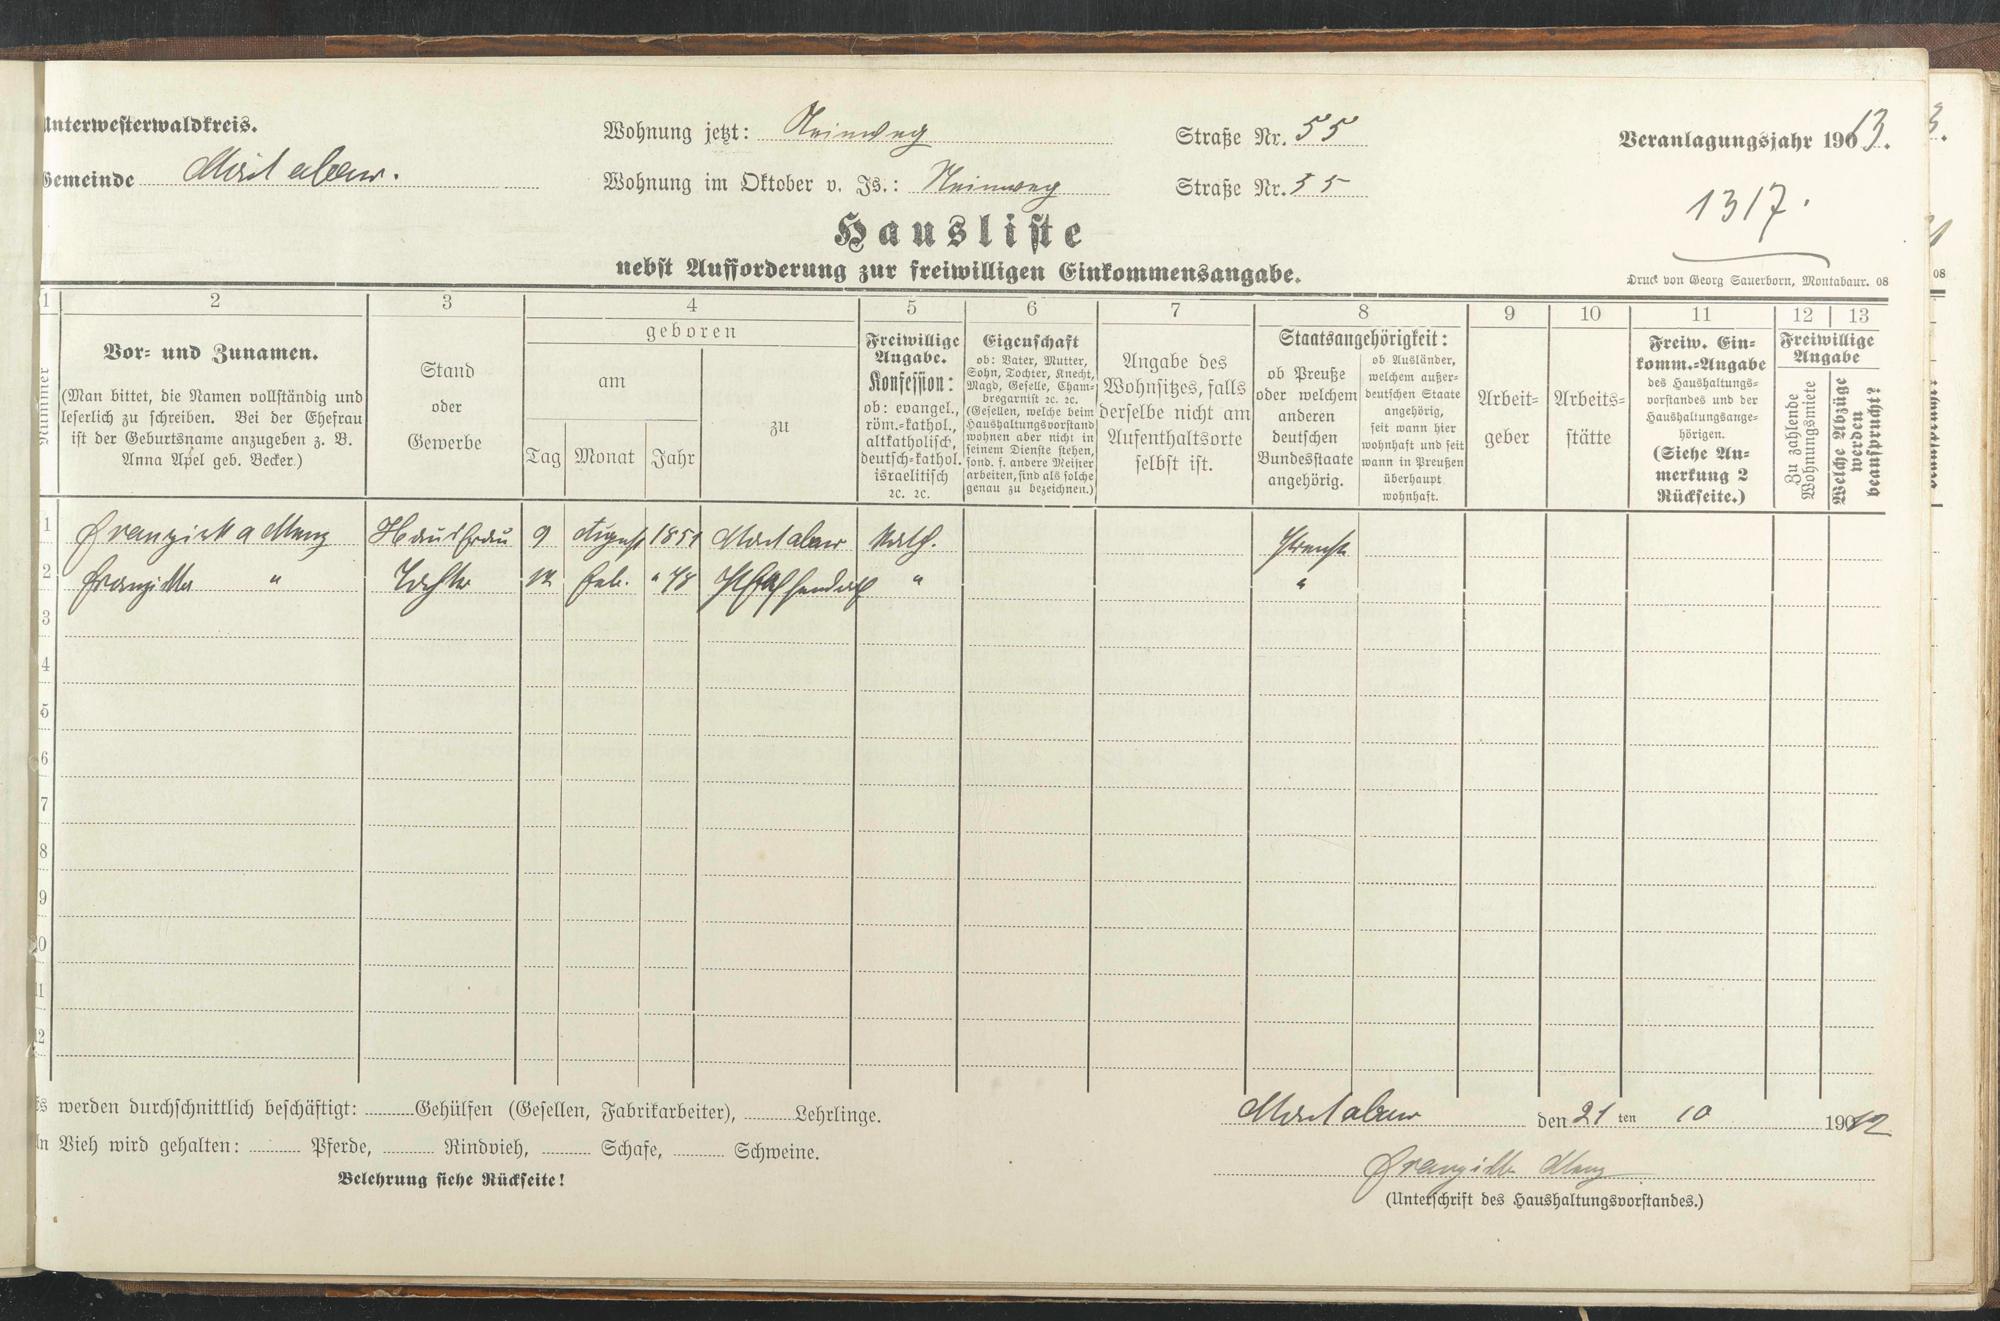 Unterwesterwaldkreis.
Gemeinde Montabaur.
Wohnung jetzt: Steinweg Straße Nr. 55
Wohnung im Oktober v. Js.: Steinweg Straße Nr. 55
Veranlagungsjahr 1913.
1317.
Hausliste
nebst Aufforderung zur freiwilligen Einkommensangabe.
Druck von Georg Sauerborn, Montabaur. 08
1 2 3 4 5 6 7 8 9 10 11 12 13
Nummer
Vor- und Zunamen.
(Man bittet, die Namen vollständig und
leserlich zu schreiben. Bei der Ehefrau
ist der Geburtsname anzugeben z. B.
Anna Apel geb. Becker.)
Stand
oder
Gewerbe
geboren
am
zu
Tag Monat Jahr
Freiwillige
Angabe.
Konfession:
ob: evangel.,
röm.-kathol.,
altkatholisch,
deutsch-kathol.
israelitisch
ec. ec.
Eigenschaft
ob: Vater, Mutter,
Sohn, Tochter, Knecht,
Magd, Geselle, Cham-
bregarnist ec. ec.
(Gesellen, welche beim
Haushaltungsvorstand
wohnen aber nicht in
seinem Dienste stehen,
sond. f. andere Meister
arbeiten, sind als solche
genau zu bezeichnen.)
Angabe des
Wohnsitzes, falls
derselbe nicht am
Aufenthaltsorte
selbst ist.
Staatsangehörigkeit:
ob Preuße
oder welchem
anderen
deutschen
Bundesstaate
angehörig.
ob Ausländer,
welchem außer-
deutschen Staate
angehörig,
seit wann hier
wohnhaft und seit
wann in Preußen
überhaupt
wohnhaft.
Arbeit-
geber
Arbeits-
stätte
Freiw. Ein-
komm.-Angabe
des Haushaltungs-
vorstandes und der
Haushaltungsange-
hörigen.
(Siehe An-
merkung 2
Rückseite.)
Freiwillige
Angabe
Zu zahlende
Wohnungsmiete
Welche Abzüge
werden
beansprucht?
1 Franziska Menz Hausfrau 9 August 1851 Montabaur Kath. Preuße
2 Franziska " Tochter 12 Feb. " 78 Pfaffendorf " "
3
4
5
6
7
8
9
10
11
12
Es werden durchschnittlich beschäftigt: Gehülfen (Gesellen, Fabrikarbeiter), Lehrlinge.
An Vieh wird gehalten: Pferde, Rindvieh, Schafe, Schweine.
Belehrung siehe Rückseite!
Montabaur den 21 ten 10 1912
Franziska Menz
(Unterschrift des Haushaltungsvorstandes.)